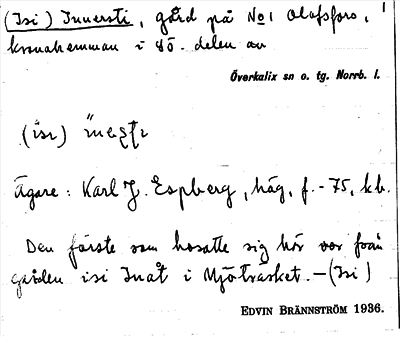 (Isi) Innersti, gård på No 1 Olofsforo,
kronahemman i sö. delen av
Överkalix sn o. tg. Norrb. l.
(isı)
Ägare: Karl J. Espberg, häg, f. -75, k.b.
Den förste som bosatte sig här var från
gården isi Inåt i Mjöträsket. - (Isi)
EDVIN BRÄNNSTRÖM 1936.